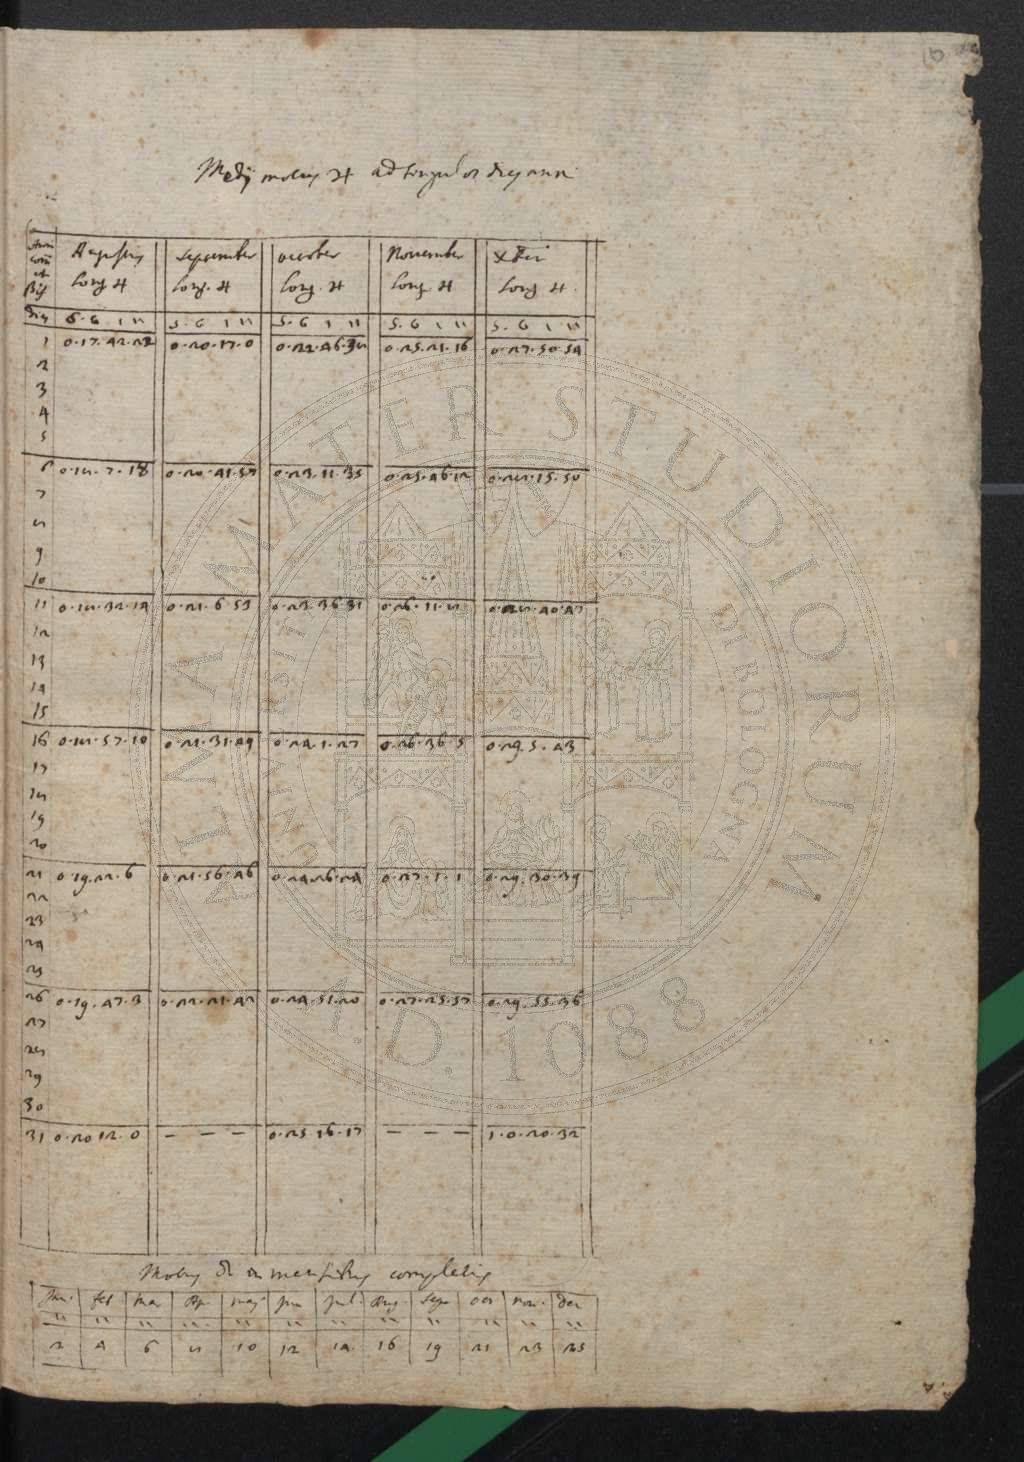 Medij motus ♃ ad singulos dies anni
Anni com et Bis
Augustus September october November Xbri
Long ♃ Long. ♃ Long. ♃ Long. ♃ Long ♃.
Dies S. G ' '' S. G ' '' S. G ' '' S. G ' '' S. G ' ''
1 0.17.42.22 0.20.17.0 0.22.46.38 0.25.21.16 0.27.50.54
2
3
4
5
6 0.18.7.18 0.20.41.57 0.23.11.35 0.25.46.12 0.28.15.50
7
8
9
10
11 0.18.32.14 0.21.6.53 0.23.36.31 0.26.11.8 0.28.40.47
12
13
14
15
16 0.18.57.10 0.21.31.49 0.24.1.27 0.26.36.5 0.29.5.43
17
18
19
20
21 0.19.22.6 0.21.56.46 0.24.26.24 0.27.1.1 0.29.30.39
22
23
24
25
26 0.19.47.3 0.22.21.42 0.24.51.20 0.27.25.57 0.29.55.36
27
28
29
30
31 0.20.12.0 – – – 0.25.16.17 – – – 1.0.20.32
Motus ☊ in mensibus completis
Jan. feb Mar Ap. maj Jun Jul. Aug. Sept oct nov. Dec
'' '' '' '' '' '' '' '' '' '' '' ''
2 4 6 8 10 12 14 16 19 21 23 25
ALMA MATER STUDIORUM
A.D. 1088